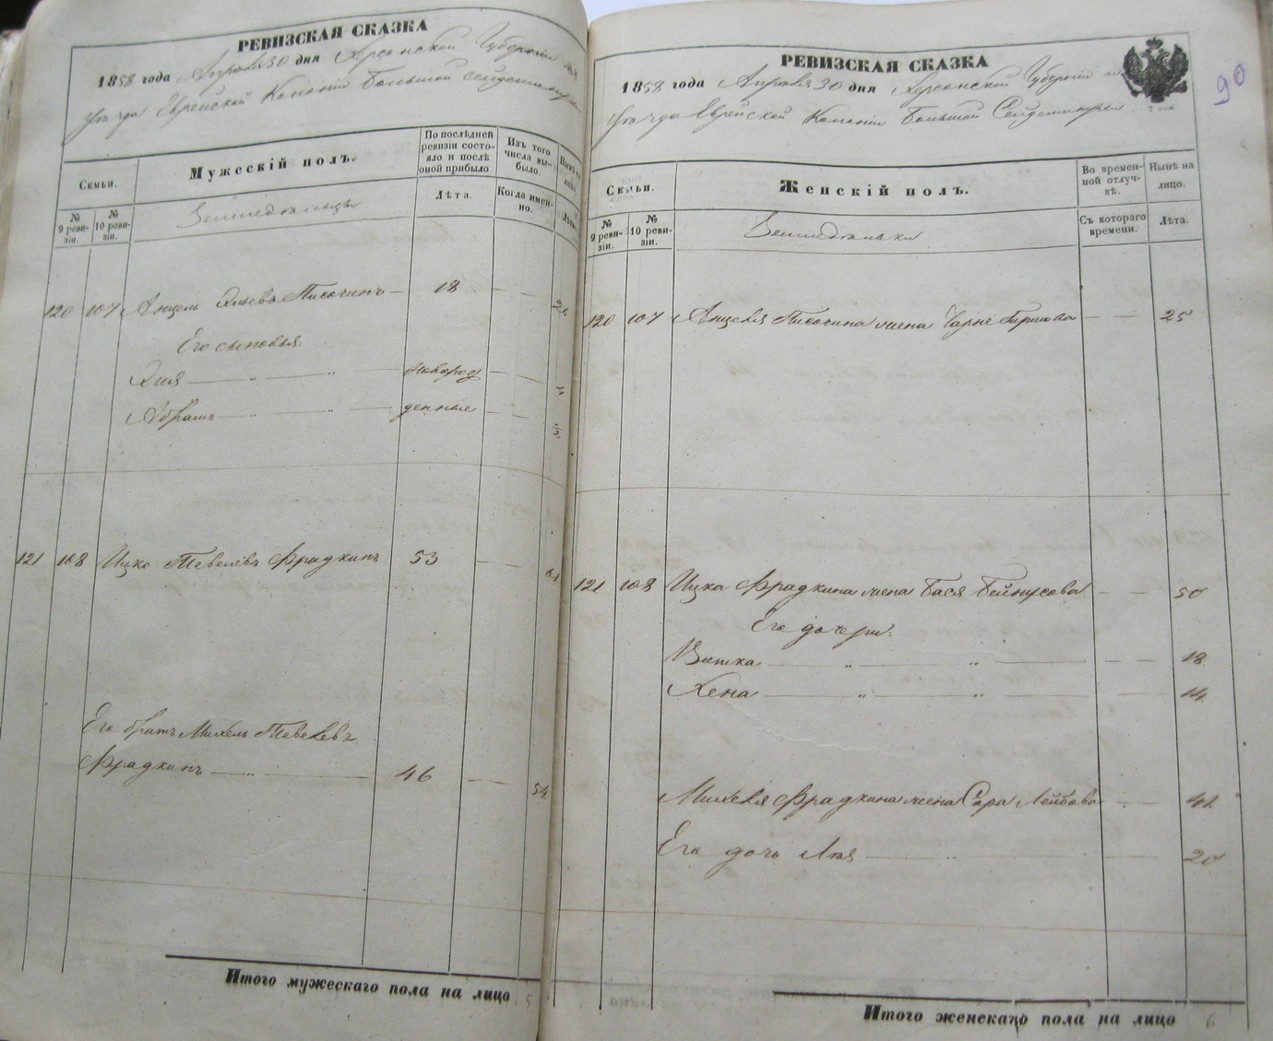 РЕВИЗСКАЯ СКАЗКА
1858 года Апреля 30 дня Херсонской Губерніи
уезда Еврейской Колоніи Большой Сейдеминухи
Семьи.
Мужескій полъ.
По послѣдней ревизіи состояло и послѣ оной прибыло
Изъ того числа выбыло.
№ 9 ревизіи.
№ 10 ревизіи.
Земледельцы
Лѣта.
Когда именно.
120 107 Анцель Эльевъ Писочинъ 18
Его сыновья.
Элия новорож
Абрамъ денные
121 108 Ицко Тевелевъ Фрадкинъ 53
Его братъ Михель Тевелевъ
Фрадкинъ 46 54
Итого мужескаго пола на лицо 5
РЕВИЗСКАЯ СКАЗКА
1858 года Апреля 30 дня Херсонской Губерніи
уезда Еврейской Колоніи Большой Сейдеминухи
90
Семьи.
Женскій полъ.
Во временной отлучкѣ.
Нынѣ на лицо.
№ 9 ревизіи.
№ 10 ревизіи.
Земледельки
Съ котораго времени.
Лѣта.
120 107 Анцеля Писочина жена Чарне Гиршова 25
121 108 Ицка Фрадкина жена Бася Бейнусова 50
Его дочери:
Витка 18
Хена 14
Михеля Фрадкина жена Сора Лейбова 41
Его дочь Лея 20
Итого женскаго пола на лицо 6